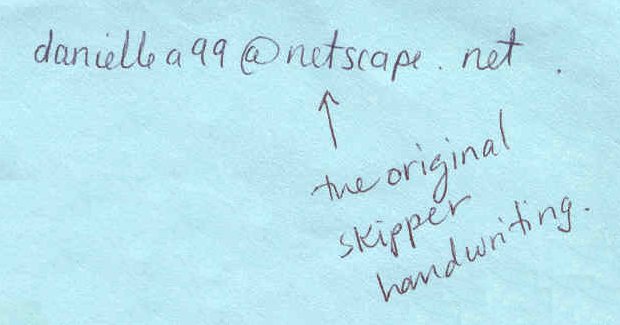 daniella99@netscape.net.
the original
skipper
handwriting.